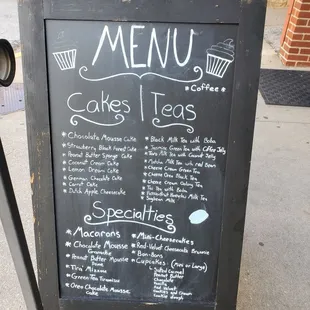 MENU
*Coffee*
Cakes | Teas
* Chocolate Mousse Cake
* Strawberry Black Forest Cake
* Peanut Butter Sponge Cake
* Coconut Cream Cake
* Lemon Dream Cake
* German Chocolate Cake
* Carrot Cake
* Dutch Apple Cheesecake
* Black Milk Tea with Boba
* Jasmine Green Tea with Coffee Jelly
Milk Tea with Coconut Jelly
* Matcha Milk Tea with red bean
* Cheese Cream Green Tea
* Cheese Cream Black Tea
* Cheese Cream Oolong Tea
* Tai Tea with Boba
Milk Tea
* Soybean Milk
Specialties
* Macarons
* Chocolate Mousse
* Peanut Butter Mousse
Dome
* Tira' Mizzma
* Green Tea Tiramisu
* Oreo Chocolate Mousse
Cake
* Mini-Cheesecakes
* Red-Velvet Cheesecake Brownie
* Bon-Bons
* Cupcakes (Mini or Large)
Salted Caramel
Peanut Butter
Chocolate
Vanilla
Red Velvet
Cookies and Cream
Cookie dough